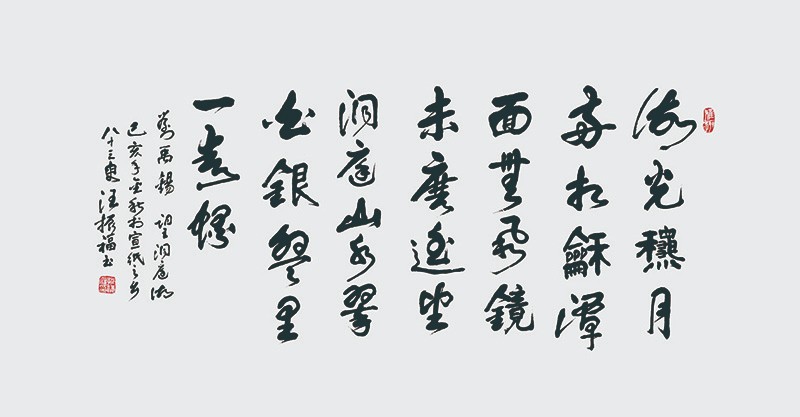 湖光龝月
兩相龢潭
面無風鏡
未磨遙望
洞庭山水翠
白銀盤里
一青螺
劉禹錫 望洞庭湖
己亥年金秋於宣紙之乡
八十三叟汪振福書